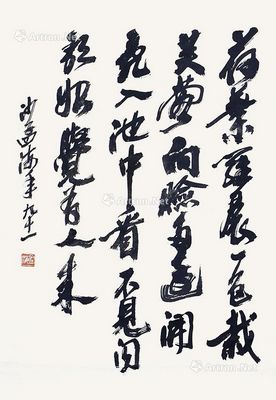 荷葉羅裙一色裁
芙蓉向臉兩邊開
亂入池中看不見聞
歌始覺有人來
沙孟海年九十一
Artron.Net
Artron.Net